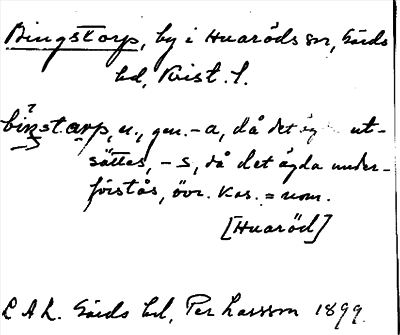 Bingstorp, by i Huaröds sn, Gärds
hd, Krist. l.
binstarp, n., gen. -a, då det äg ut-
sättes, -s, då det ägda under-
förstås, övr. kas. = nom.
[Huaröd]
L A L. Gärds hd, Per Larsson 1899.